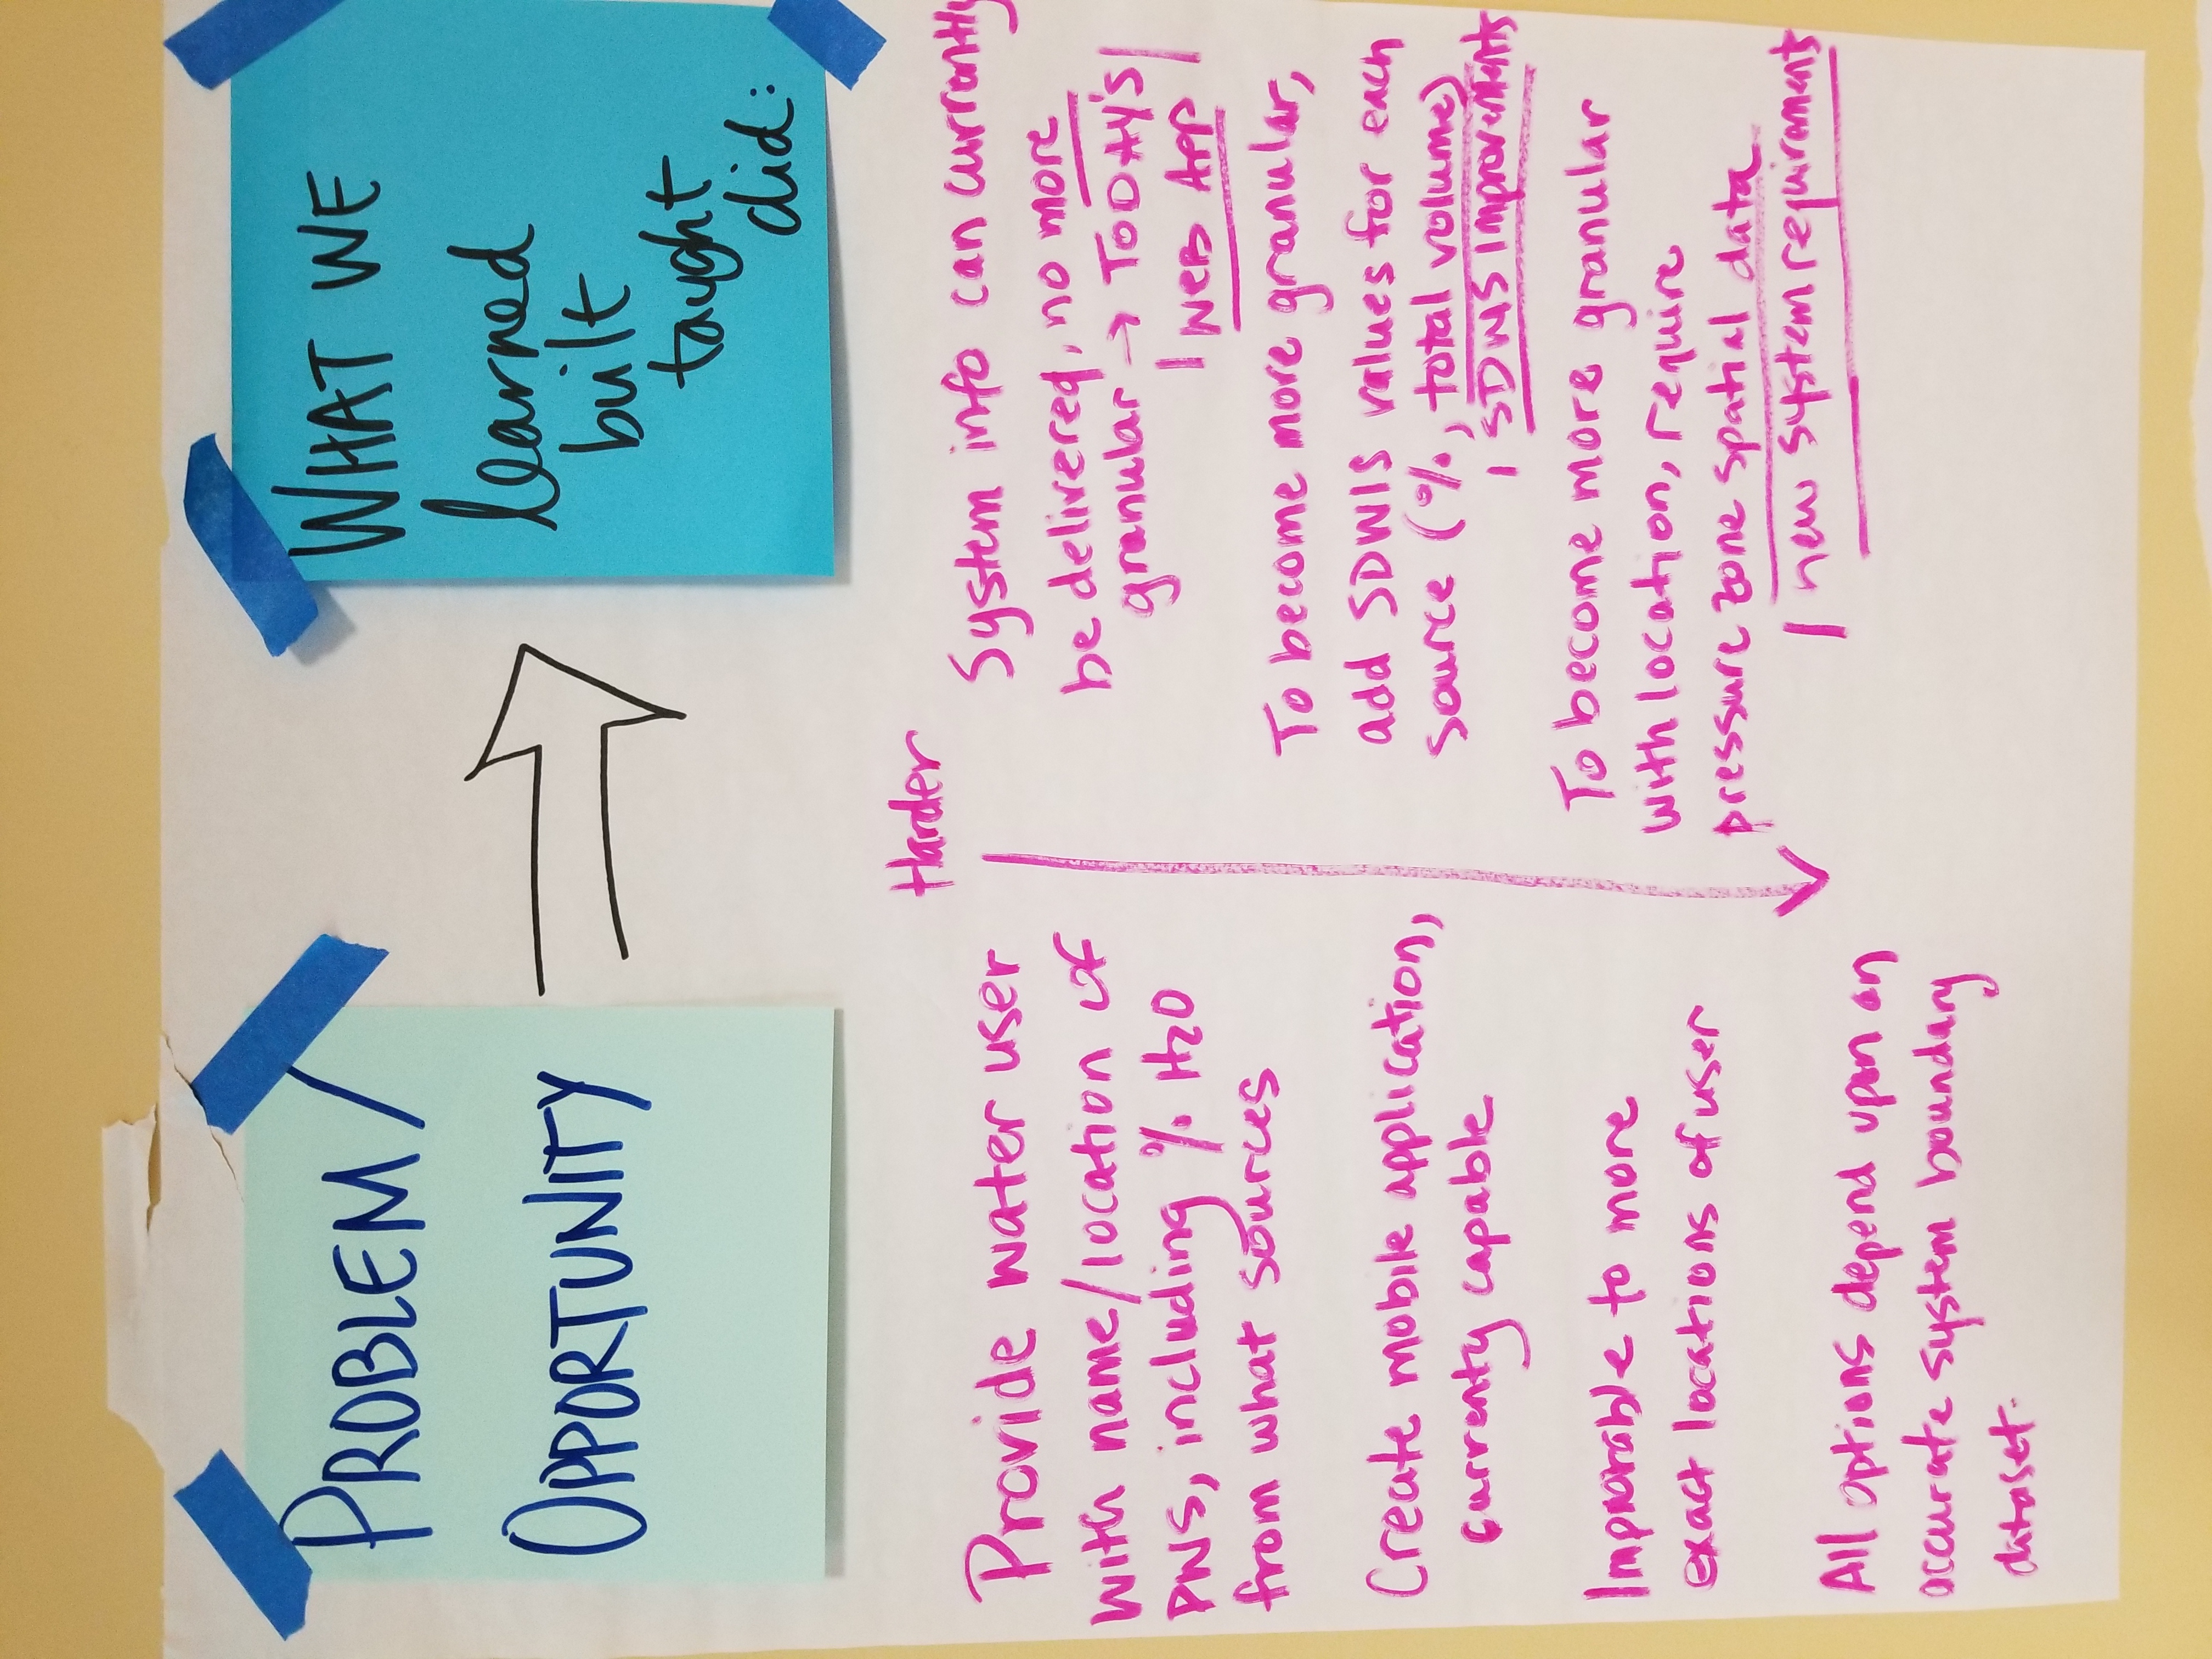 PROBLEM /
OPPORTUNITY
WHAT WE
learned
built
taught
did:
Harder
Provide water user
with name/location of
PWS, including % H2O
from what sources
Create mobile application,
currenty capable
Improvable to more
exact locations of user
All options depend upon an
accurate system boundary
dataset.
System info can currently
be delivered, no more
granular → TODAY'S
WEB APP
To become more granular,
add SDWIS values for each
source (%, total volume)
SDWIS Improvements
To become more granular
with location, require
pressure zone spatial data
new system requirements